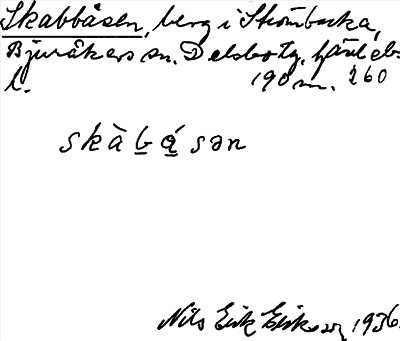 Skabbåsen, berg i Strömbacka,
Bjuråkers sn. Delsbo tg.
l. 190 m. 260
skàbǻsən
Nils Erik Eriksson, 1936.